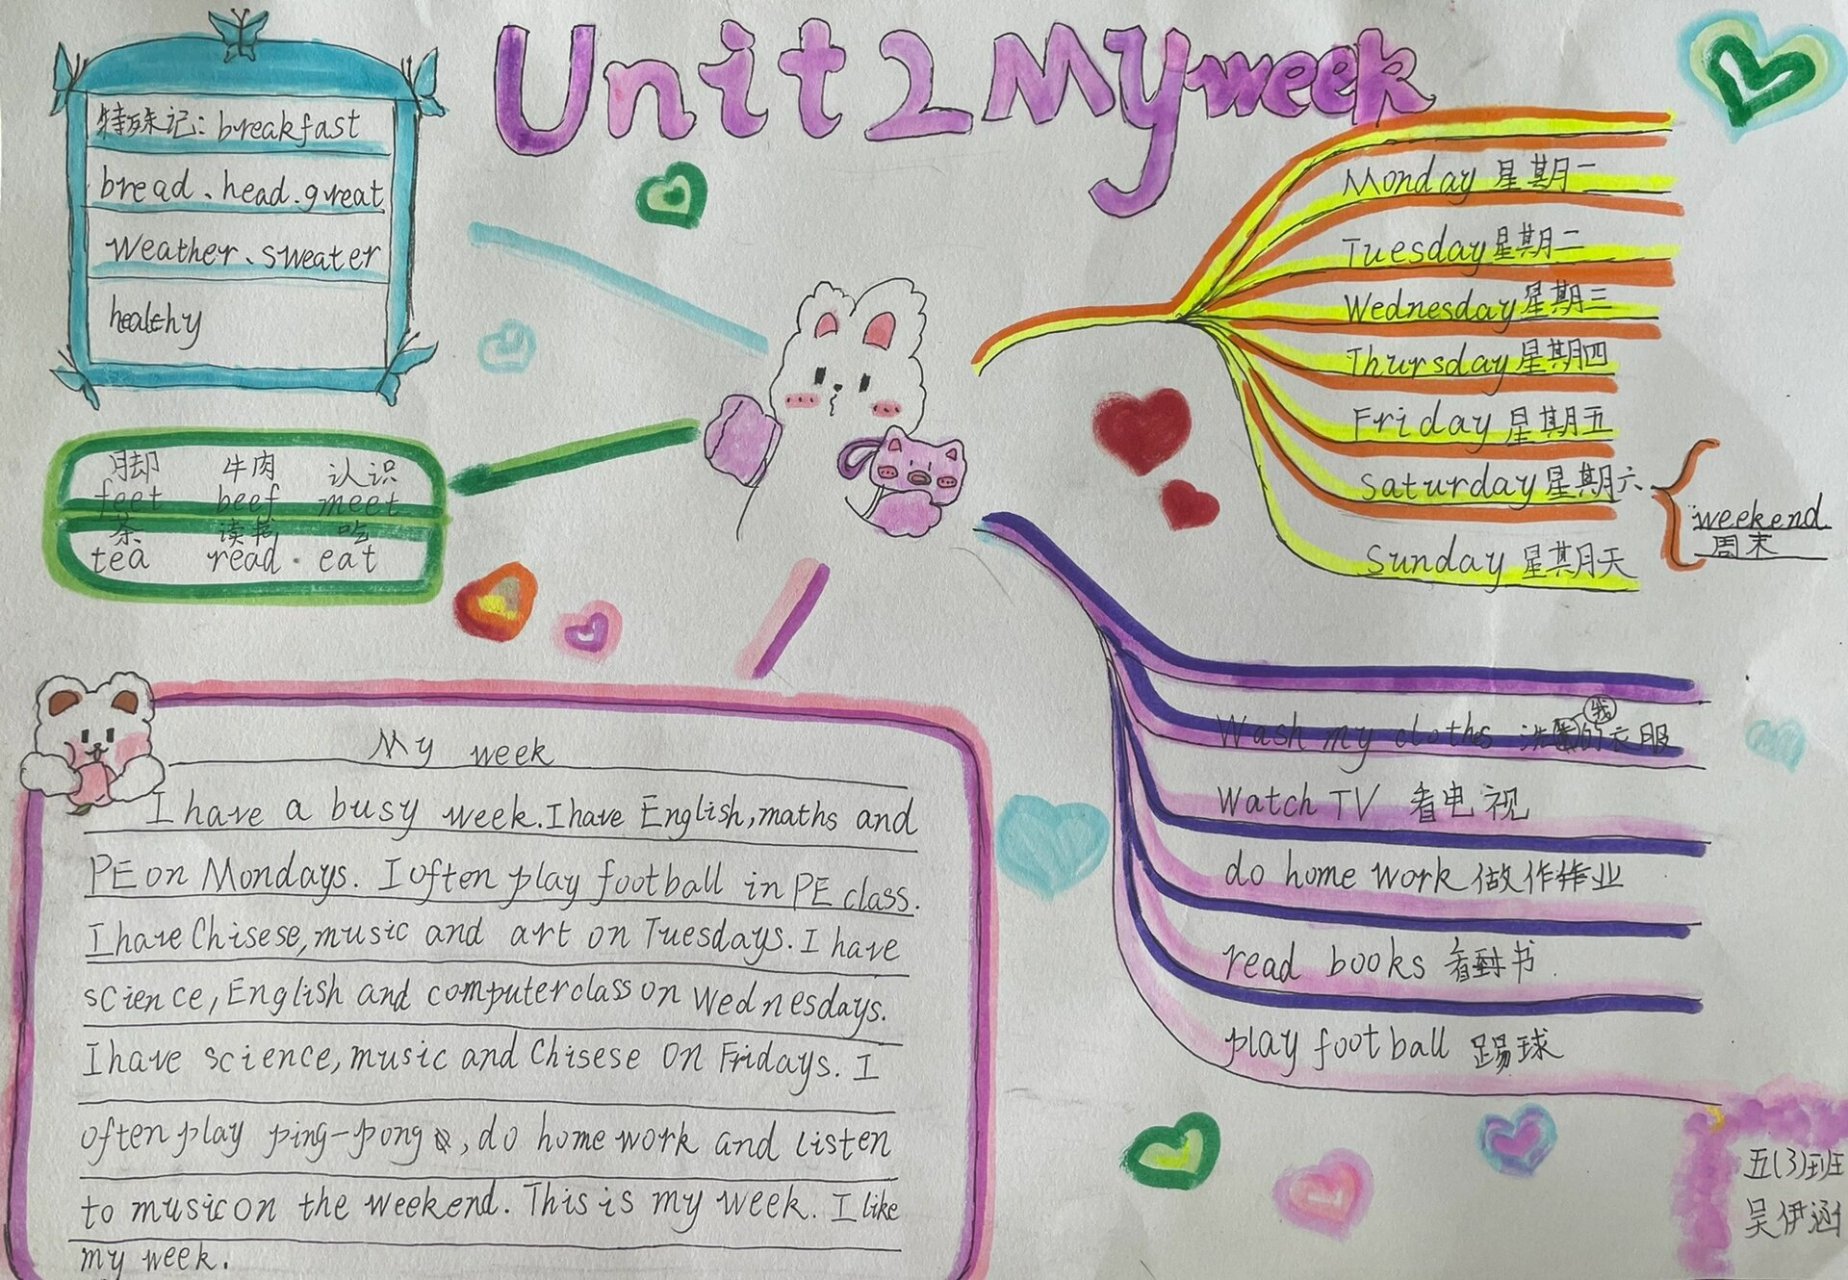 Unit 2 My week
特殊记: breakfast
bread、head.great
Weather、sweater
healthy
脚 牛肉 认识
feet beef meet
茶 读书 吃
tea read · eat
Monday 星期一
Tuesday 星期二
Wednesday 星期三
Thursday 星期四
Friday 星期五
Saturday 星期六
Sunday 星期天
weekend
周末
Wash my cloths 洗我的衣服
Watch TV 看电视
do home work 做作业
read books 看书
play football 踢球
My week
I have a busy week. I have English, maths and
PE on Mondays. I often play football in PE class.
I have Chisese, music and art on Tuesdays. I have
science, English and computer class on Wednesdays.
I have science, music and Chisese on Fridays. I
often play ping-pong, do home work and listen
to music on the weekend. This is my week. I like
my week.
五(3)班
吴伊涵